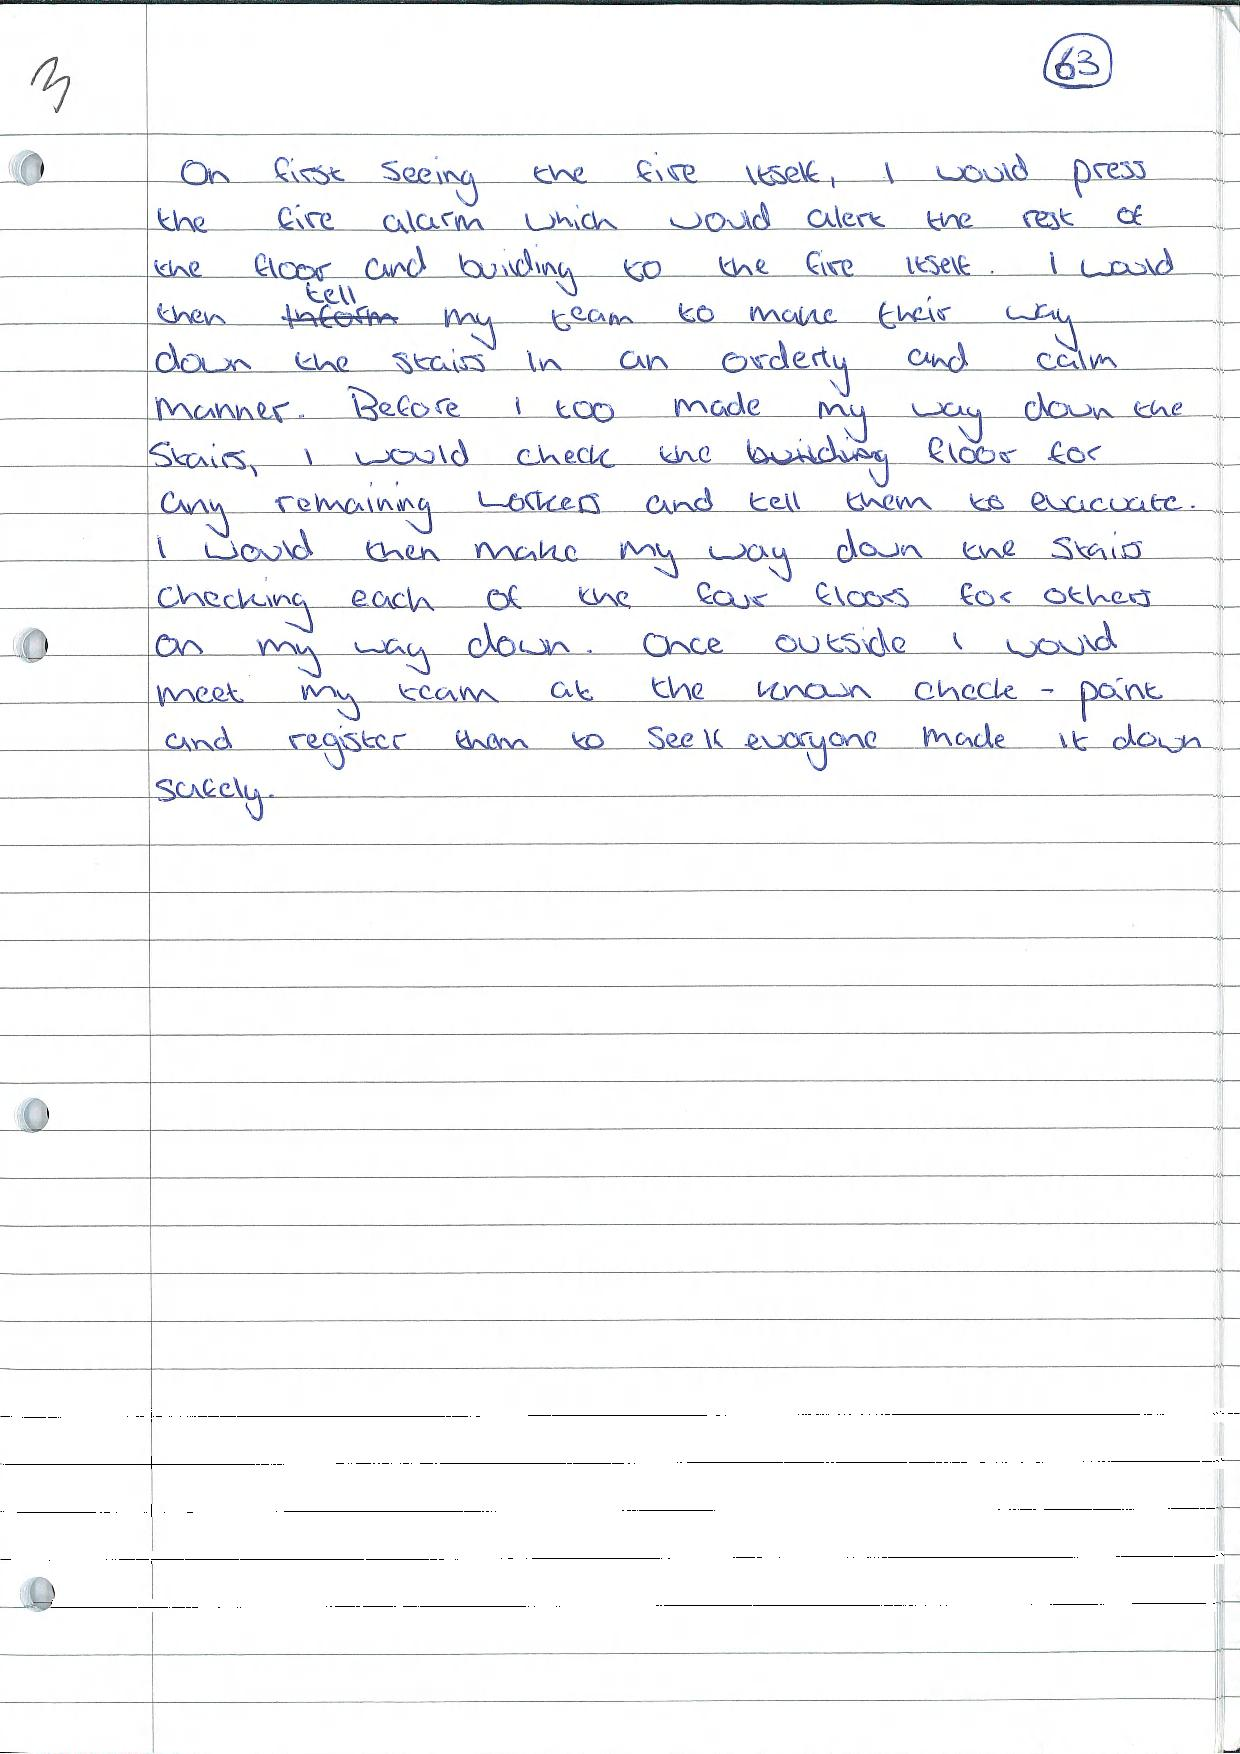 3
63
On first seeing the fire itself, I would press
the fire alarm which would alert the rest of
the floor and building to the fire itself. I would
tell
then inform my team to make their way
down the stairs in an orderly and calm
manner. Before I too made my way down the
stairs, I would check the building floor for
any remaining workers and tell them to evacuate.
I would then make my way down the stairs
checking each of the four floors for others
on my way down. Once outside I would
meet my team at the known check-point
and register them to see if everyone made it down
safely.